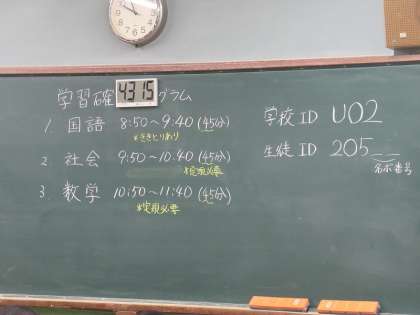 学習確 43 15 グラム
1. 国語 8:50〜9:40 (45分)
*ききとりあり
2. 社会 9:50〜10:40 (45分)
*定規必要
3. 数学 10:50〜11:40 (45分)
*定規必要
学校 ID U02
生徒 ID 205_ _
名示番号